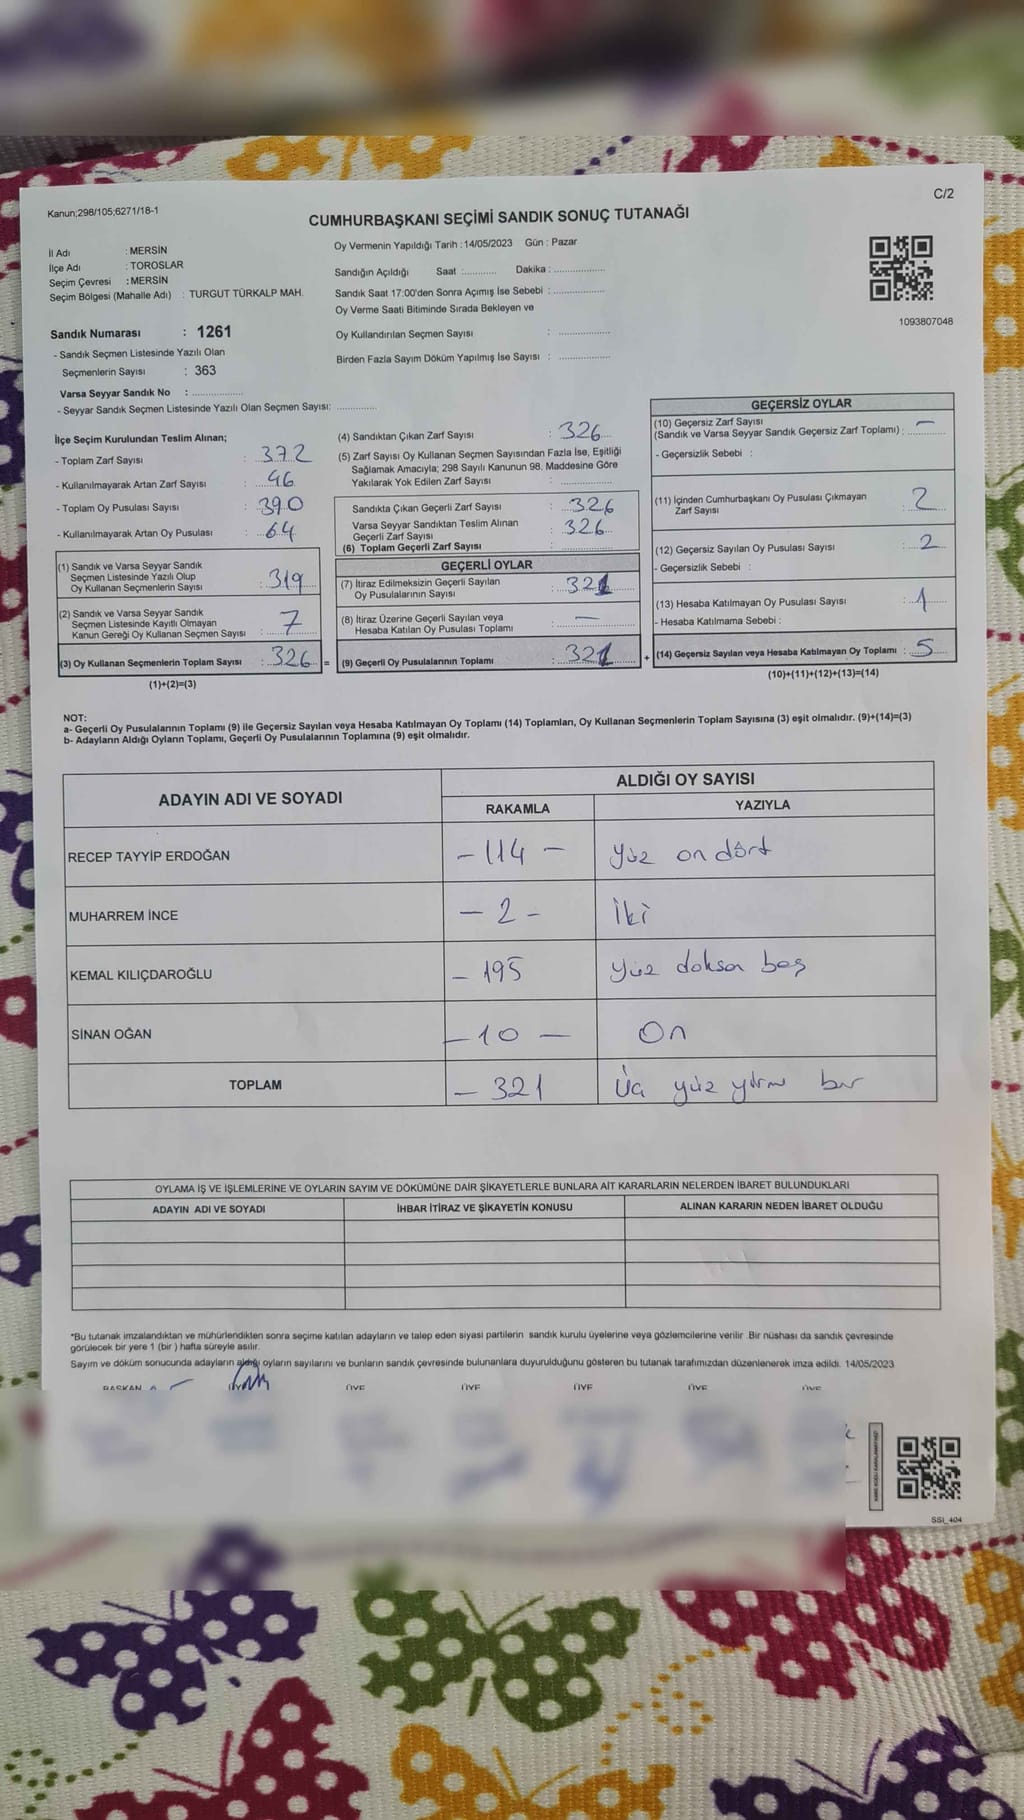 C/2
Kanun;298/105;6271/18-1
CUMHURBAŞKANI SEÇİMİ SANDIK SONUÇ TUTANAĞI
İl Adı : MERSİN
İlçe Adı : TOROSLAR
Seçim Çevresi : MERSİN
Seçim Bölgesi (Mahalle Adı) : TURGUT TÜRKALP MAH.
Sandık Numarası : 1261
- Sandık Seçmen Listesinde Yazılı Olan
Seçmenlerin Sayısı : 363
Varsa Seyyar Sandık No : ..................
- Seyyar Sandık Seçmen Listesinde Yazılı Olan Seçmen Sayısı: ..............
Oy Vermenin Yapıldığı Tarih : 14/05/2023 Gün : Pazar
Sandığın Açıldığı Saat :............ Dakika : ..................
Sandık Saat 17:00'den Sonra Açımış İse Sebebi : ..................
Oy Verme Saati Bitiminde Sırada Bekleyen ve
Oy Kullandırılan Seçmen Sayısı : ..................
Birden Fazla Sayım Döküm Yapılmış İse Sayısı : ..................
1093807048
İlçe Seçim Kurulundan Teslim Alınan;
- Toplam Zarf Sayısı : 372
- Kullanılmayarak Artan Zarf Sayısı : 46
- Toplam Oy Pusulası Sayısı : 390
- Kullanılmayarak Artan Oy Pusulası : 64
(1) Sandık ve Varsa Seyyar Sandık
Seçmen Listesinde Yazılı Olup
Oy Kullanan Seçmenlerin Sayısı : 319
(2) Sandık ve Varsa Seyyar Sandık
Seçmen Listesinde Kayıtlı Olmayan
Kanun Gereği Oy Kullanan Seçmen Sayısı : 7
(3) Oy Kullanan Seçmenlerin Toplam Sayısı : 326 =
(1)+(2)=(3)
(4) Sandıktan Çıkan Zarf Sayısı : 326
(5) Zarf Sayısı Oy Kullanan Seçmen Sayısından Fazla İse, Eşitliği
Sağlamak Amacıyla; 298 Sayılı Kanunun 98. Maddesine Göre
Yakılarak Yok Edilen Zarf Sayısı : ..............
Sandıkta Çıkan Geçerli Zarf Sayısı : 326
Varsa Seyyar Sandıktan Teslim Alınan
Geçerli Zarf Sayısı : 326
(6) Toplam Geçerli Zarf Sayısı : ..............
GEÇERLİ OYLAR
(7) İtiraz Edilmeksizin Geçerli Sayılan
Oy Pusulalarının Sayısı : 321
(8) İtiraz Üzerine Geçerli Sayılan veya
Hesaba Katılan Oy Pusulası Toplamı : —
(9) Geçerli Oy Pusulalarının Toplamı : 321 +
GEÇERSİZ OYLAR
(10) Geçersiz Zarf Sayısı
(Sandık ve Varsa Seyyar Sandık Geçersiz Zarf Toplamı) : —
- Geçersizlik Sebebi :
(11) İçinden Cumhurbaşkanı Oy Pusulası Çıkmayan
Zarf Sayısı : 2
(12) Geçersiz Sayılan Oy Pusulası Sayısı : 2
- Geçersizlik Sebebi :
(13) Hesaba Katılmayan Oy Pusulası Sayısı : 1
- Hesaba Katılmama Sebebi :
(14) Geçersiz Sayılan veya Hesaba Katılmayan Oy Toplamı : 5
(10)+(11)+(12)+(13)=(14)
NOT:
a- Geçerli Oy Pusulalarının Toplamı (9) ile Geçersiz Sayılan veya Hesaba Katılmayan Oy Toplamı (14) Toplamları, Oy Kullanan Seçmenlerin Toplam Sayısına (3) eşit olmalıdır. (9)+(14)=(3)
b- Adayların Aldığı Oyların Toplamı, Geçerli Oy Pusulalarının Toplamına (9) eşit olmalıdır.
ADAYIN ADI VE SOYADI
ALDIĞI OY SAYISI
RAKAMLA YAZIYLA
RECEP TAYYİP ERDOĞAN - 114 - yüz on dört
MUHARREM İNCE - 2 - iki
KEMAL KILIÇDAROĞLU - 195 yüz doksan beş
SİNAN OĞAN - 10 - On
TOPLAM - 321 Üç yüz yirmi bir
OYLAMA İŞ VE İŞLEMLERİNE VE OYLARIN SAYIM VE DÖKÜMÜNE DAİR ŞİKAYETLERLE BUNLARA AİT KARARLARIN NELERDEN İBARET BULUNDUKLARI
ADAYIN ADI VE SOYADI İHBAR İTİRAZ VE ŞİKAYETİN KONUSU ALINAN KARARIN NEDEN İBARET OLDUĞU
*Bu tutanak imzalandıktan ve mühürlendikten sonra seçime katılan adayların ve talep eden siyasi partilerin sandık kurulu üyelerine veya gözlemcilerine verilir. Bir nüshası da sandık çevresinde
görülecek bir yere 1 (bir ) hafta süreyle asılır.
Sayım ve döküm sonucunda adayların aldığı oyların sayılarını ve bunların sandık çevresinde bulunanlara duyurulduğunu gösteren bu tutanak tarafımızdan düzenlenerek imza edildi. 14/05/2023
BAŞKAN ÜYE ÜYE ÜYE ÜYE ÜYE
SSI_404